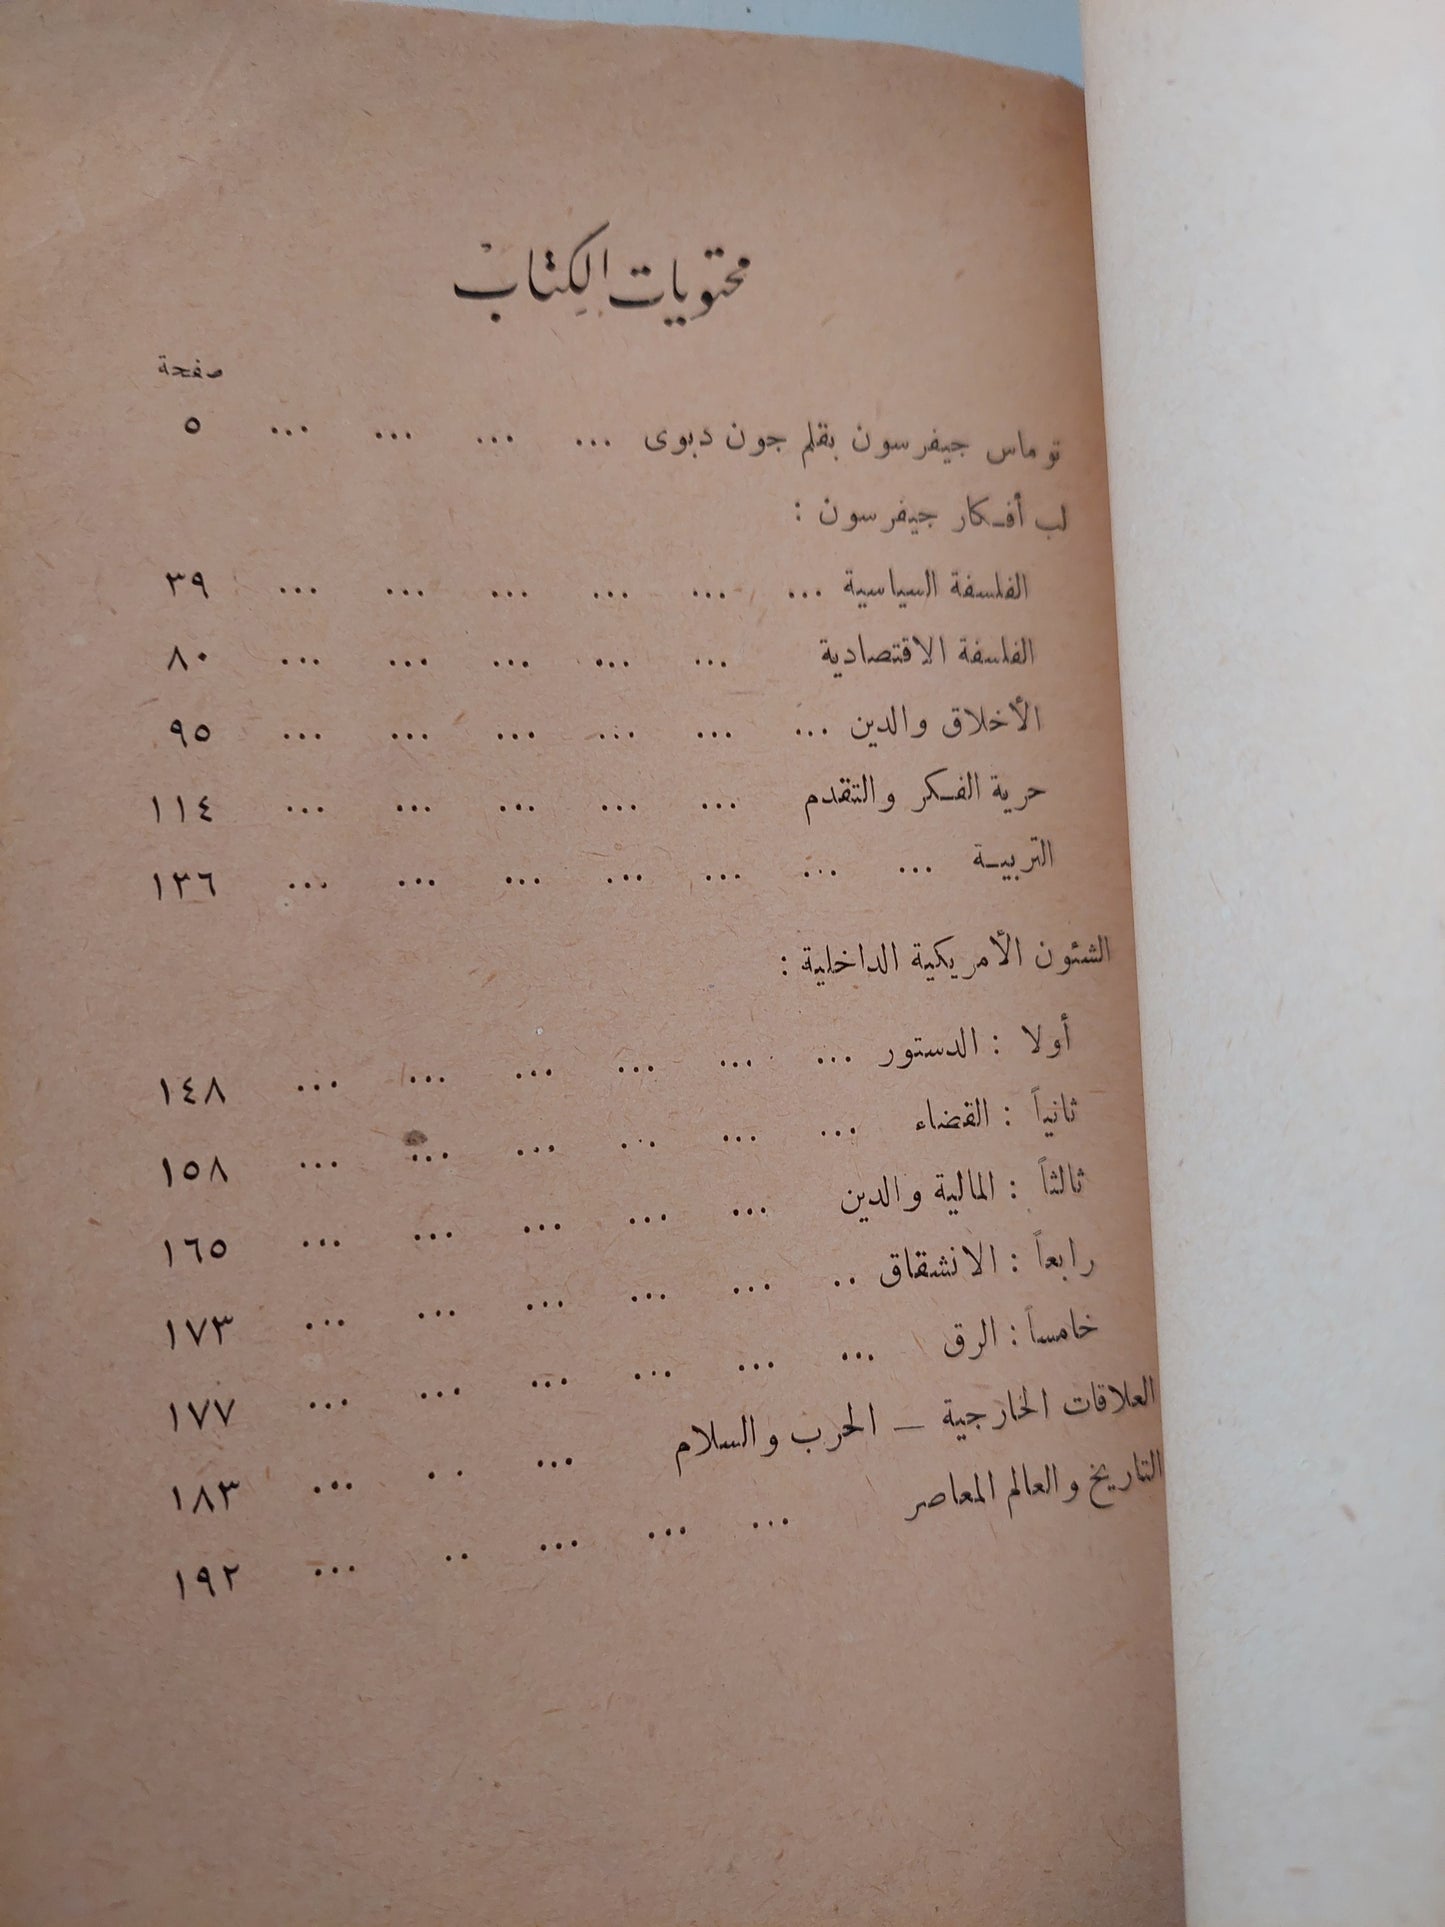 محتويات الكتاب
صفحة
توماس جيفرسون بقلم جون ديوى ... ... ... ... ٥
لب أفكار جيفرسون :
الفلسفة السياسية ... ... ... ... ... ... ٣٩
الفلسفة الاقتصادية ... ... ... ... ... ٨٠
الأخلاق والدين ... ... ... ... ... ... ٩٥
حرية الفكر والتقدم ... ... ... ... ... ١١٤
التربية ... ... ... ... ... ... ... ١٣٦
الشئون الأمريكية الداخلية :
أولا : الدستور ... ... ... ... ... ... ١٤٨
ثانياً : القضاء ... ... ... ... ... ... ١٥٨
ثالثاً : المالية والدين ... ... ... ... ... ١٦٥
رابعاً : الانشقاق .. ... ... ... ... ... ١٧٣
خامساً : الرق ... ... ... ... ... ... ١٧٧
العلاقات الخارجية – الحرب والسلام ... .. ... ١٨٣
التاريخ والعالم المعاصر ... ... ... .. ... ١٩٢